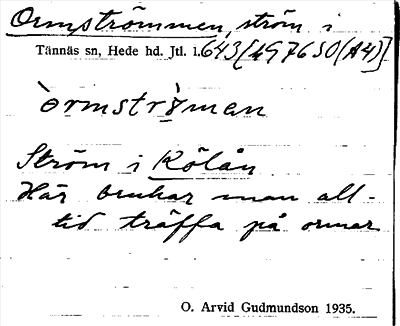 Ormströmmen, ström i
Tännäs sn, Hede hd. Jtl. l. 643 [497650 (A4)]
òrmströ̀man
Ström i Kölån
Här brukar man all-
tid träffa på ormar
O. Arvid Gudmundson 1935.